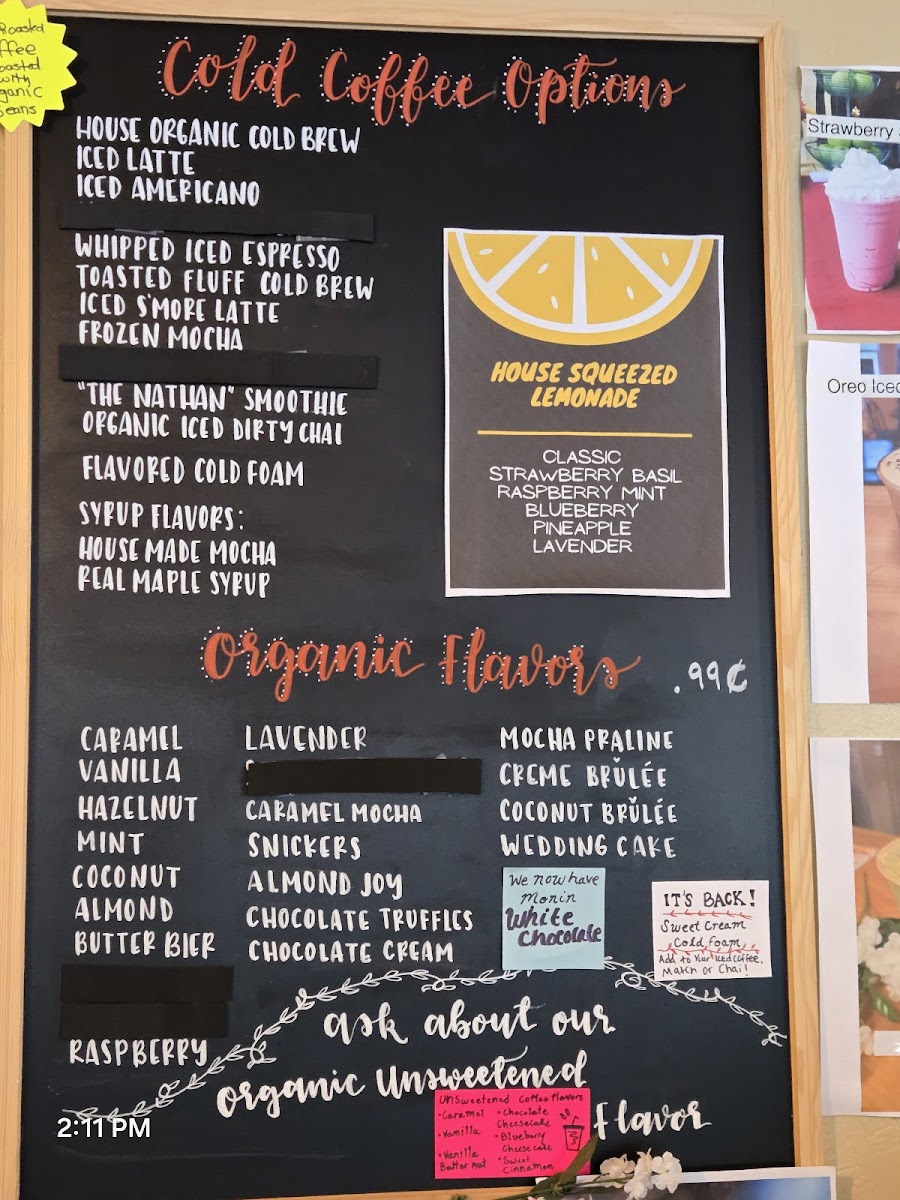 Roasted
ffee
oasted
with
ganic
Beans
Cold Coffee Options
HOUSE ORGANIC COLD BREW
ICED LATTE
ICED AMERICANO
WHIPPED ICED ESPRESSO
TOASTED FLUFF COLD BREW
ICED S'MORE LATTE
FROZEN MOCHA
"THE NATHAN" SMOOTHIE
ORGANIC ICED DIRTY CHAI
FLAVORED COLD FOAM
SYRUP FLAVORS:
HOUSE MADE MOCHA
REAL MAPLE SYRUP
HOUSE SQUEEZED
LEMONADE
CLASSIC
STRAWBERRY BASIL
RASPBERRY MINT
BLUEBERRY
PINEAPPLE
LAVENDER
Strawberry
Oreo Iced
Organic Flavors .99¢
CARAMEL
VANILLA
HAZELNUT
MINT
COCONUT
ALMOND
BUTTER BIER
RASPBERRY
LAVENDER
CARAMEL MOCHA
SNICKERS
ALMOND JOY
CHOCOLATE TRUFFLES
CHOCOLATE CREAM
MOCHA PRALINE
CREME BRŬLÉE
COCONUT BRŬLÉE
WEDDING CAKE
We now have
Monin
White
Chocolate
IT'S BACK!
Sweet Cream
Cold Foam
Add to Your Iced Coffee,
Match or Chai!
ask about our
organic unsweetened
Flavor
Unsweetened Coffee Flavors
• Caramel
• Vanilla
• Vanilla
Butternut
• Chocolate
Cheesecake
• Blueberry
Cheesecake
• Sweet
Cinnamon
2:11 PM